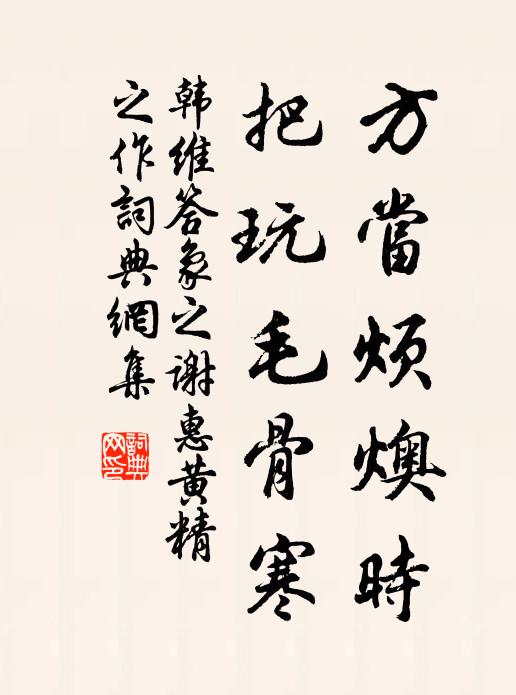 方當煩燠時
把玩毛骨寒
韩維答象之謝惠黄精
之作詞典網集
詞典
网印